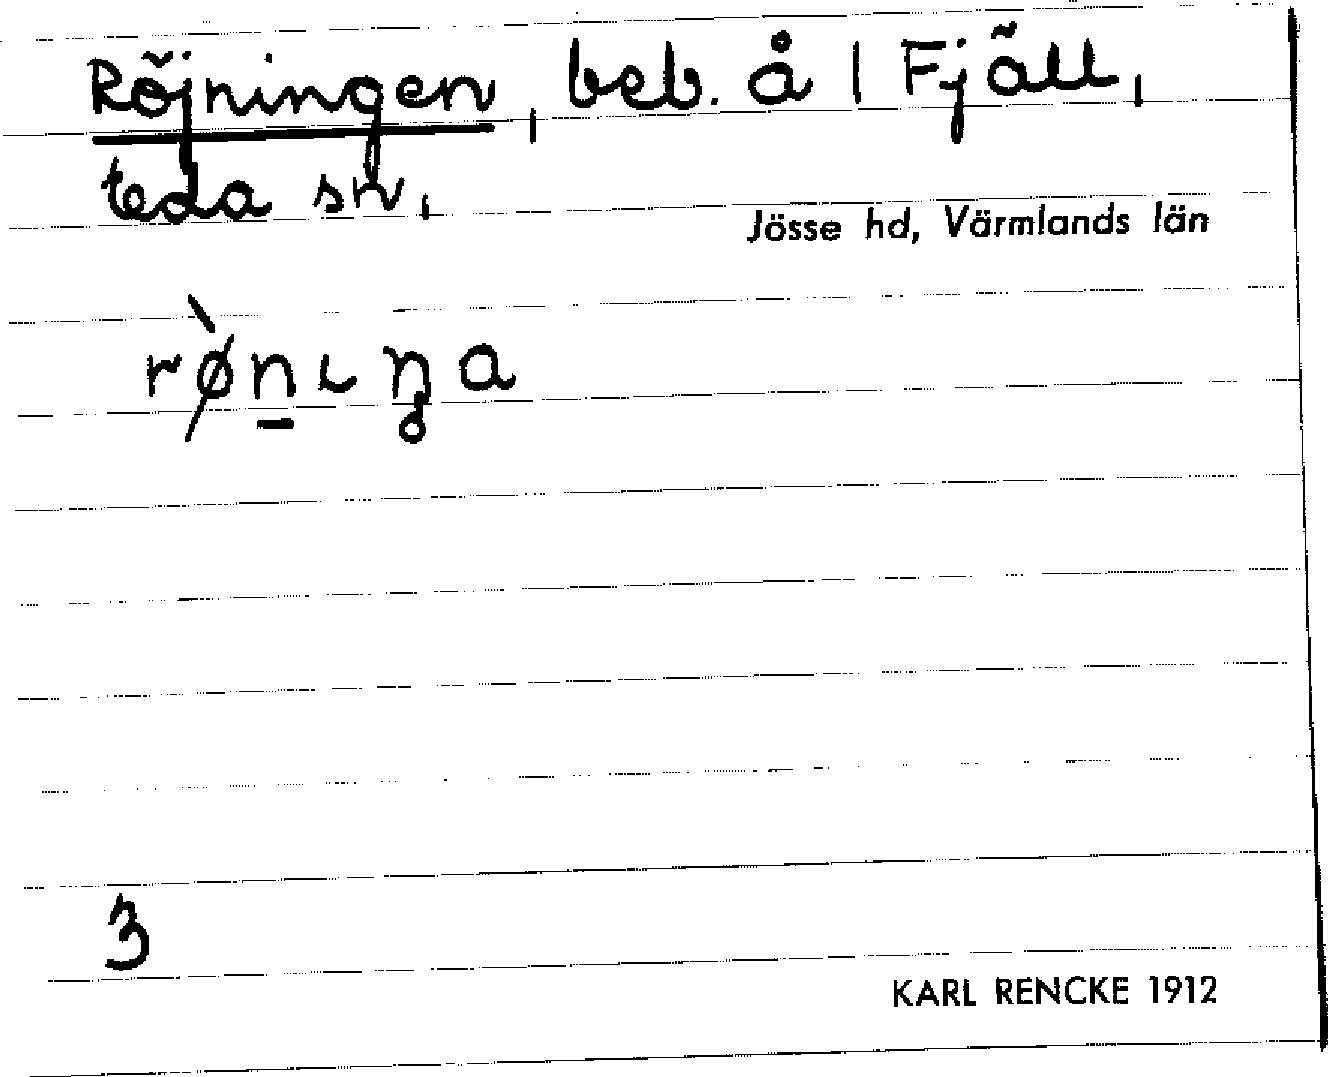 Röjningen, beb. å 1 Fjäll,
teda sn,
Jösse hd, Värmlands län
rø̀n̲ɩŋa
3
KARL RENCKE 1912